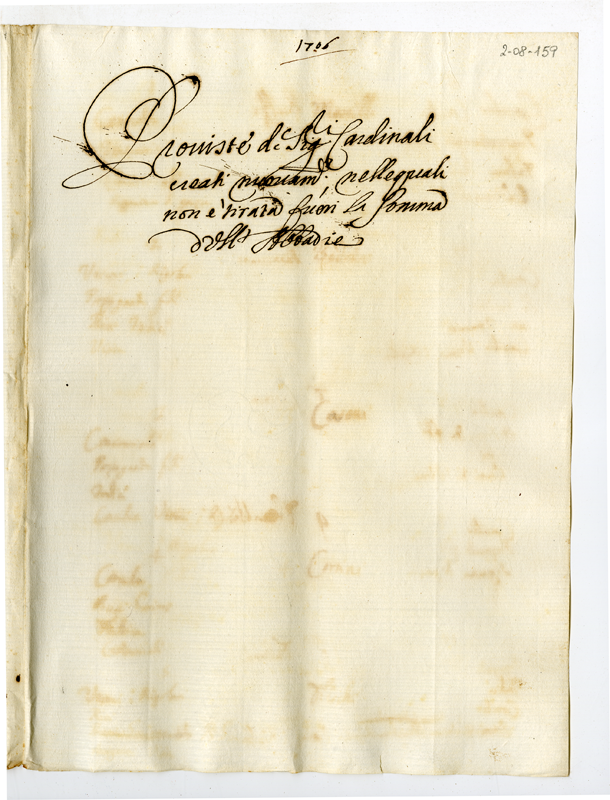 1706
2-08-159
Proviste de Sig.ri Cardinali
creati nuovam.te nelle quali
non è tirata fuori la somma
dell' Abbadie